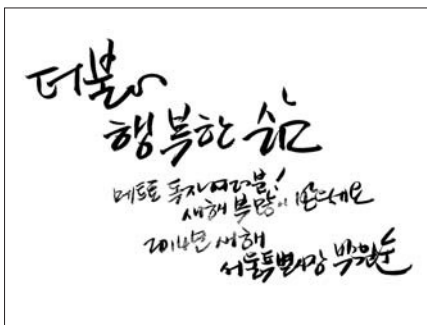 더불어
행복한 삶
메트로 독자 여러분!
새해 복 많이 받으세요
2014년 새해
서울특별시장 박원순